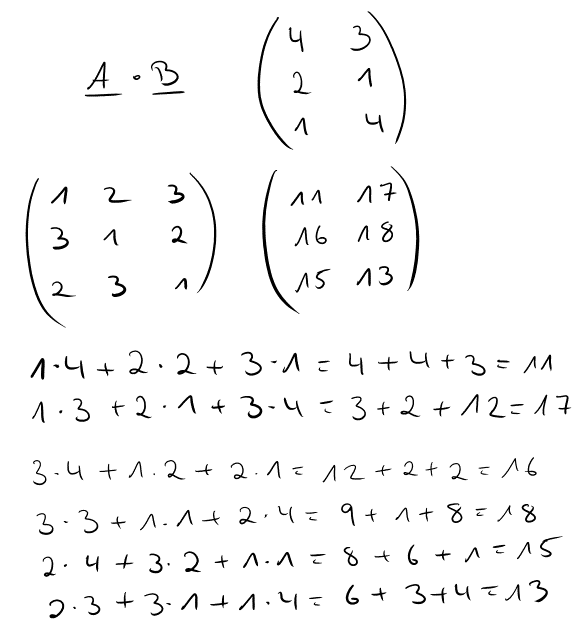 A · B
4 3
2 1
1 4
1 2 3
3 1 2
2 3 1
11 17
16 18
15 13
1·4 + 2·2 + 3·1 = 4 + 4 + 3 = 11
1·3 + 2·1 + 3·4 = 3 + 2 + 12 = 17
3·4 + 1·2 + 2·1 = 12 + 2 + 2 = 16
3·3 + 1·1 + 2·4 = 9 + 1 + 8 = 18
2·4 + 3·2 + 1·1 = 8 + 6 + 1 = 15
2·3 + 3·1 + 1·4 = 6 + 3 + 4 = 13